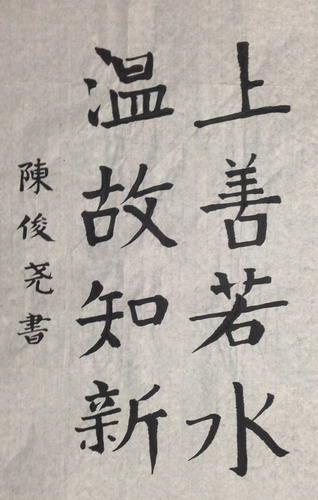 上善若水
温故知新
陳俊尧書